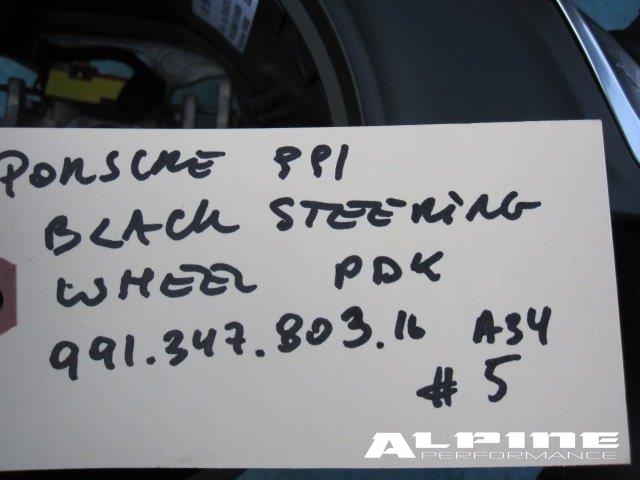 PORSCHE 991
BLACK STEERING
WHEEL PDK
991.347.803.16 A34
# 5
ALPINE
PERFORMANCE